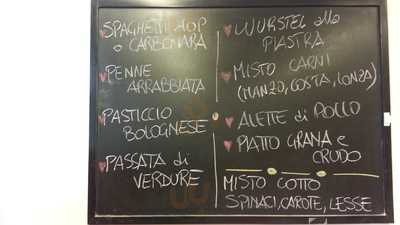 SPAGHETTI AOP
o CARBONARA
PENNE
ARRABBIATA
PASTICCIO
BOLOGNESE
PASSATA di
VERDURE
WURSTEL alla
PIASTRA
MISTO CARNI
(MANZO, COSTA, LONZA)
ALETTE di POLLO
PIATTO GRANA e
CRUDO
MISTO COTTO
SPINACI, CAROTE, LESSE